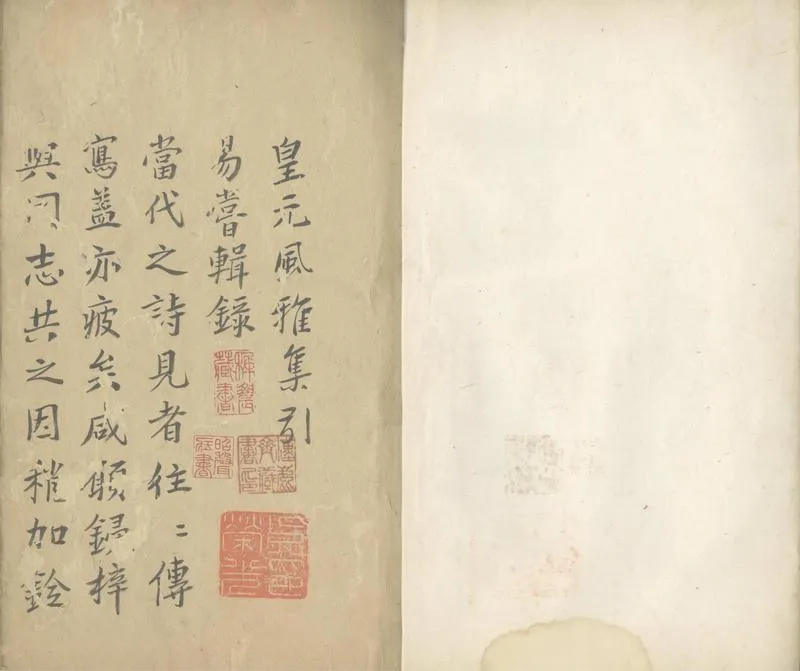 皇元風雅集引
易嘗輯錄
當代之詩見者往〻傳
寫蓋亦疲矣咸願鋟梓
與同志共之因稍加銓